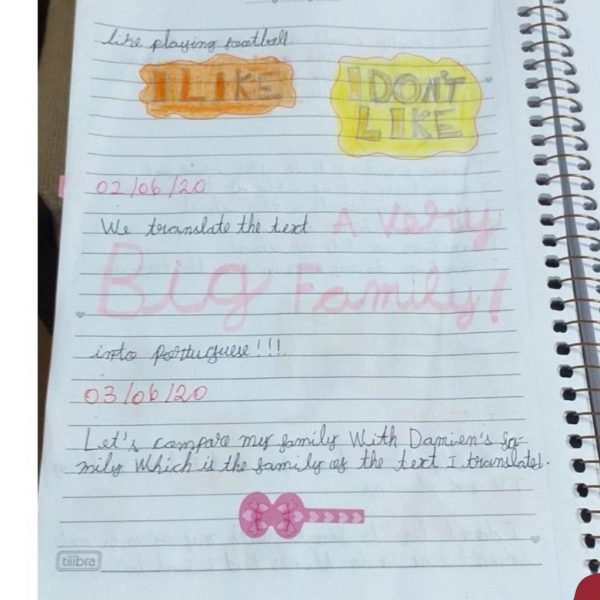 like playing football
I LIKE
I DON'T
LIKE
02/06/20
We translate the text A Very
Big Family!
into portuguese!!!
03/06/20
Let's compare my family With Damien's fa-
mily Which is the family of the text I translated.
tilibra